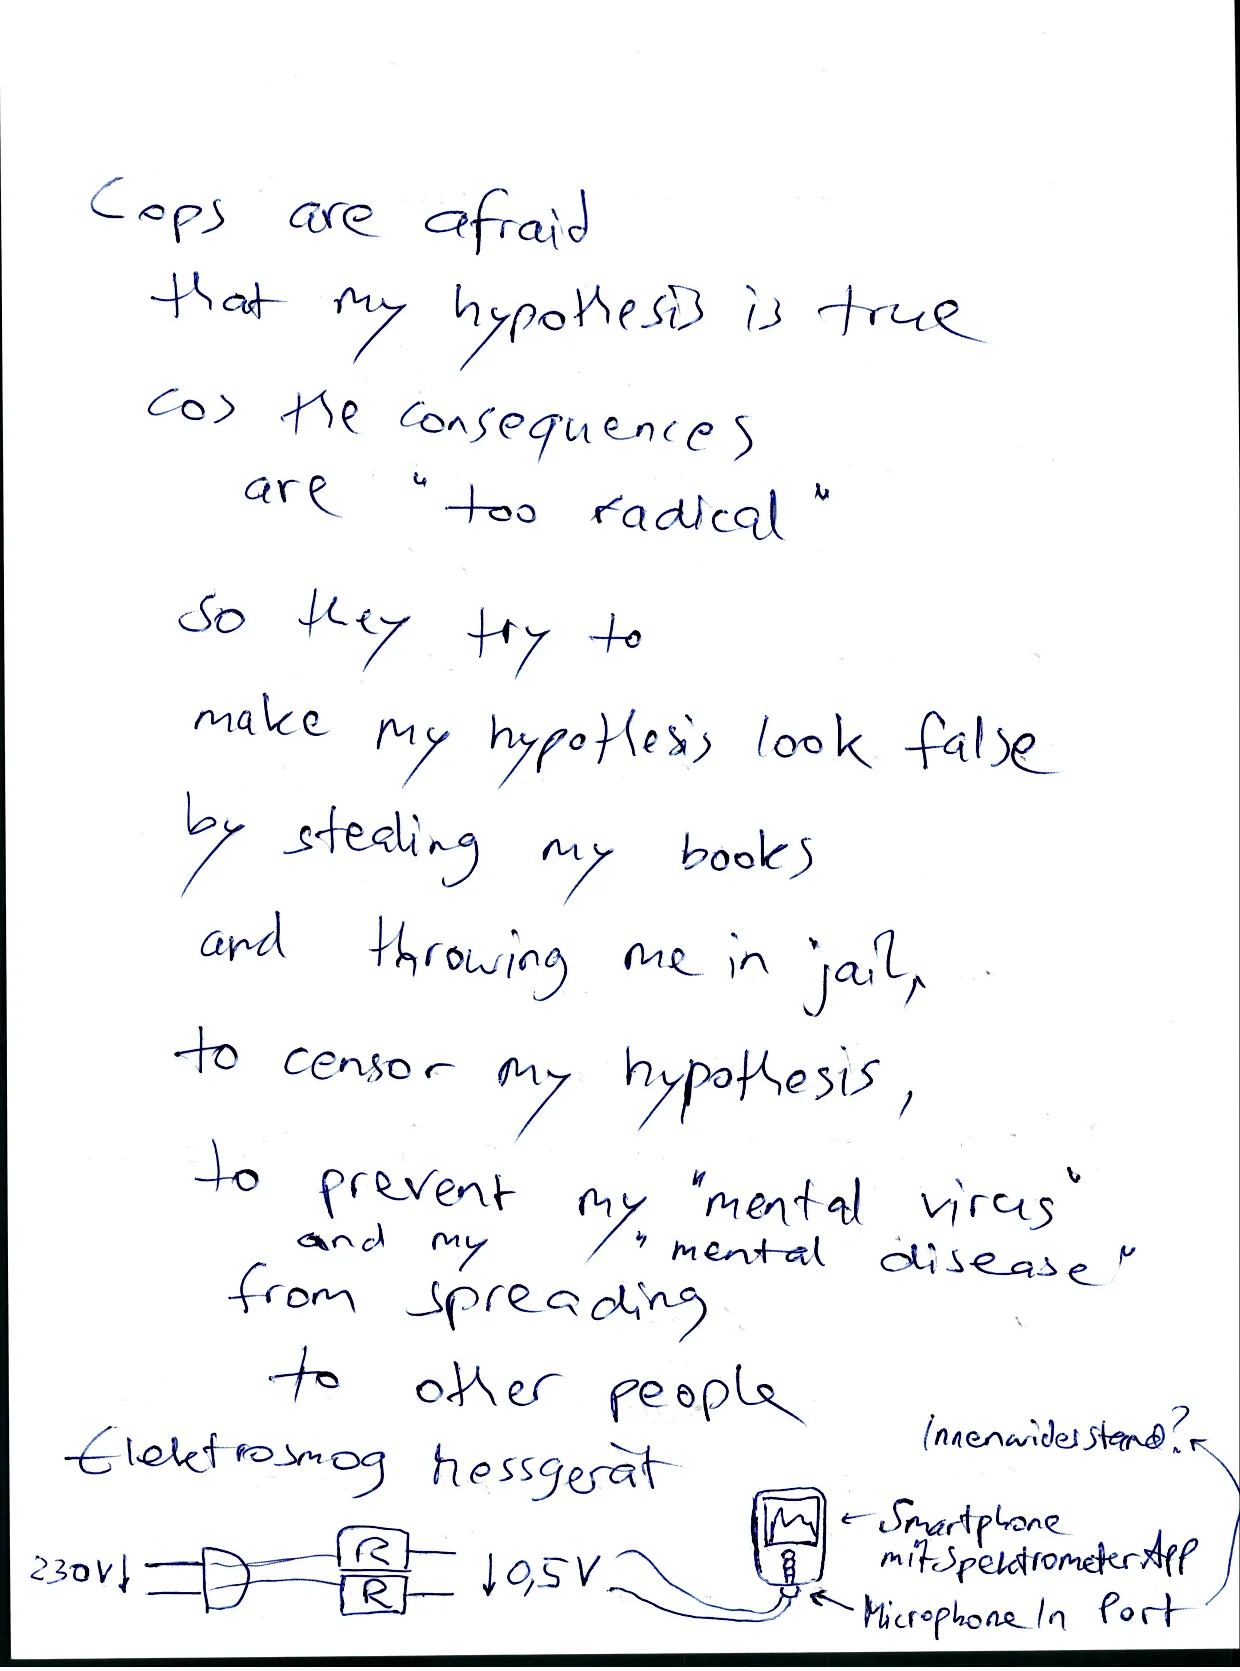 Cops are afraid
that my hypothesis is true
cos the consequences
are "too radical"
so they try to
make my hypothesis look false
by stealing my books
and throwing me in jail,
to censor my hypothesis,
to prevent my "mental virus"
and my "mental disease"
from spreading
to other people
Elektrosmog Messgerät
Innenwiderstand?
230V↓
R
R
↓0,5V
← Smartphone
mit Spektrometer App
← Microphone In Port